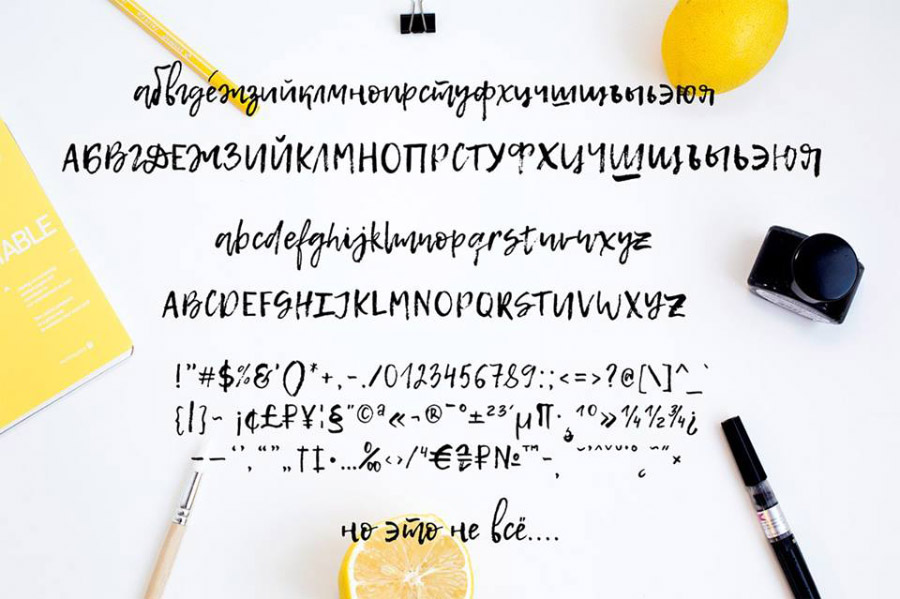 TABLE
абвгдеёжзийклмнопрстуфхцчшщъыьэюя
АБВГДЕЖЗИЙКЛМНОПРСТУФХЦЧШЩЪЫЬЭЮЯ
abcdefghijklmnopqrstuvwxyz
ABCDEFGHIJKLMNOPQRSTUVWXYZ
!"#$%&'()*+,-./0123456789:;<=>?@[\]^_`
{|}~ ¡¢£₽¥¦§¨©ª«¬®¯°±²³´µ¶·¸¹º»¼½¾¿
–—‘’‚“”„†‡•…‰‹›/⁴€₴₽№™−
но это не всё....